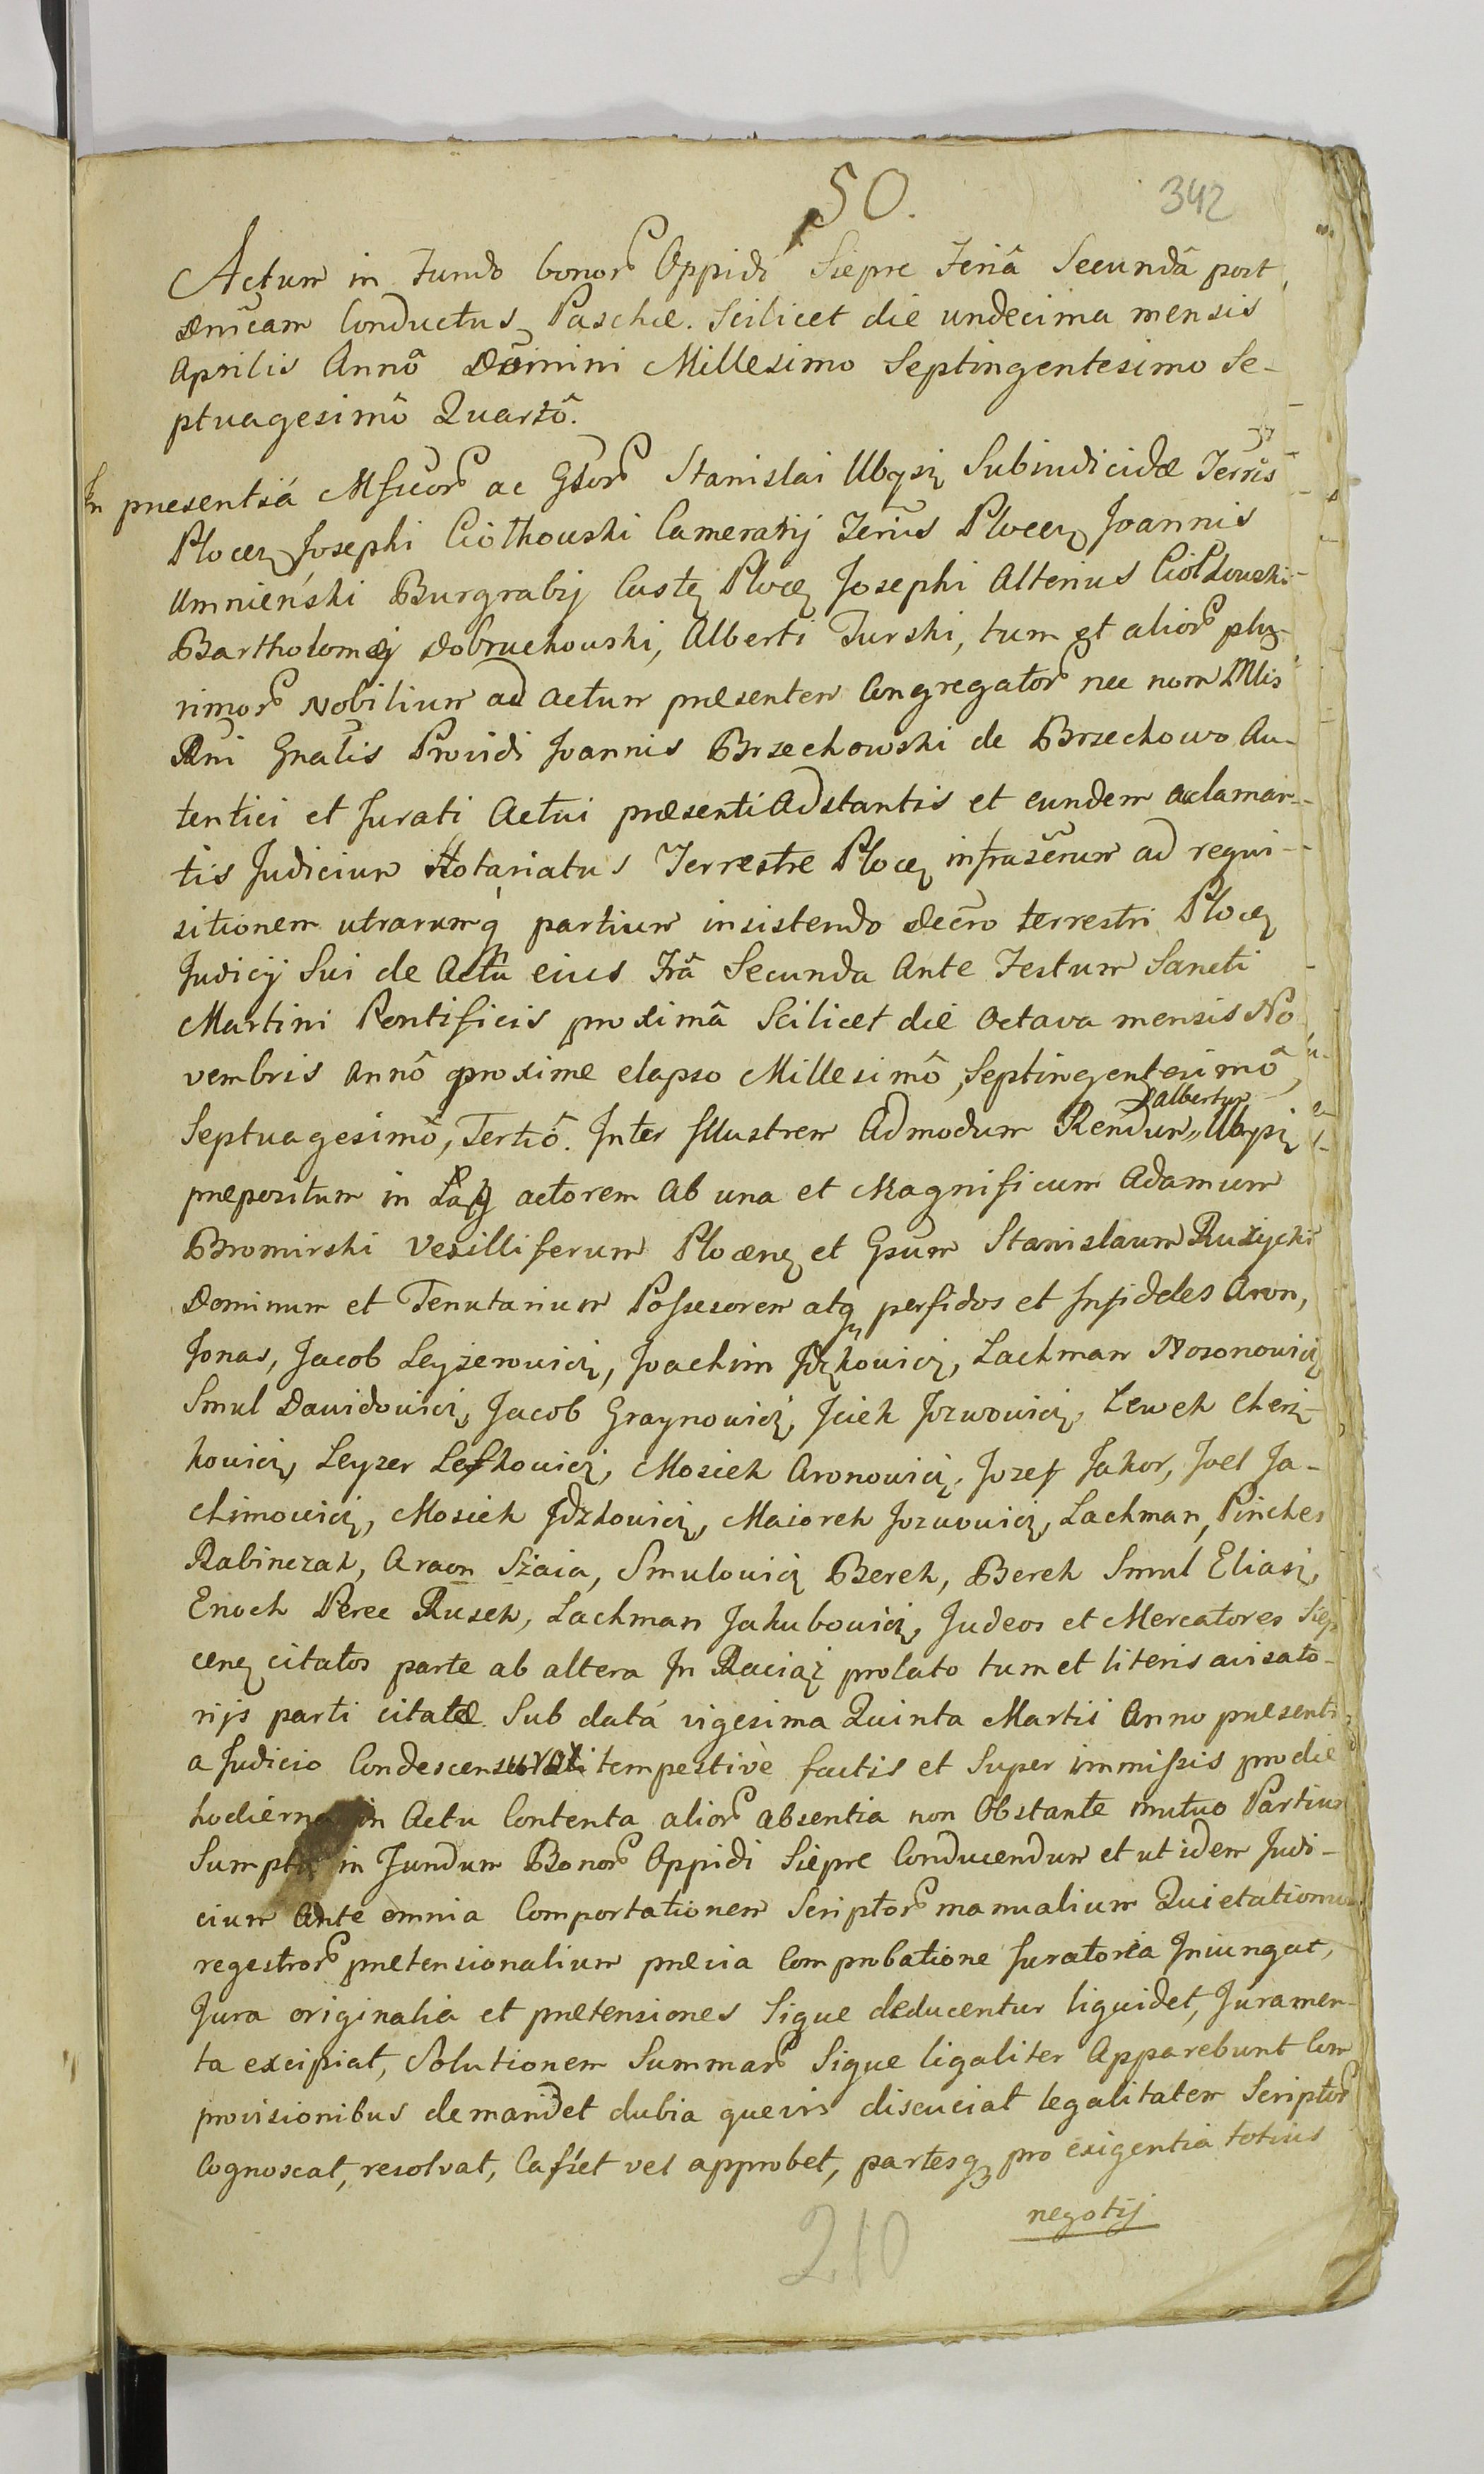 50.
342
Actum in Fundo bonor Oppidi Siepre Feriâ Secundâ post
Dnicam Conductus Paschæ. Scilicet die undecima mensis
Aprilis Annô Domini Millesimo Septingentesimo Se-
ptuagesimô Quartô.
In presentiá Mficor ac Gsor Stanislai Ubysz Subiudicidæ Terris
Plocen Josephi Ciółkowski Camerarij Terris Plocen Joannis
Umnieński Burgrabij Casten Plocen Josephi Alterius Ciołkowski
Bartholomæj Dobruchowski, Alberti Turski, tum et alior plu-
rimor Nobilium ad Actum præsentem Congregator nec non Mlis
Rni Gnalis Providi Joannis Brzechowski de Brzechowo Au-
tentici et Jurati Actui præsenti Adstantis et eundem aclaman-
tis Judicium Notariatus Terrestre Plocen infrascrum ad requi-
sitionem utrarumq partium insistendo Decro terrestri Plocen
Judicij Sui de Actû eius Frâ Secunda Ante Festum Sancti
Martini Pontificis proximâ Scilicet die Octava mensis No-
vembris Annô proxime elapso Millesimô, Septingentesimô,
Septuagesimô, Tertiô. Inter Illustrem Admodum Rendum „ Ubysz
Albertum
præpositum in actorem Ab una et Magnificum Adamum
Bromirski Vexilliferum Plocens et Gsum Stanislaum Rużycki
Dominum et Tenutarium Possesorem atq perfidos et Infideles Aron,
Jonas, Jacob Leyzerowicz, Joachim Jckowicz, Lachman Nosonowicz
Smul Dawidowicz, Jacob Graynowicz, Jciek Jozwowicz, Lewek Chersz-
kowicz, Leyzer Lefkowicz, Mosiek Aronowicz, Jozef Jakor, Joel Ja-
chimowicz, Mosiek Jdzkowicz, Maiorek Jozwowicz, Lachman, Pinches
Rabinczak, Araon Szaia, Smulowicz Berek, Berek Smul Eliasz,
Enoch Perec Rusek, Lachman Jakubowicz, Judeos et Mercatores Siep
cens citatos parte ab altera In Raciąż prolato tum et literis avisato-
rijs parti citatæ. Sub datá vigesima Quinta Martii Anno presenti
a Judicio Condescensurali tempestivè factis et Super immissis pro die
hodierna in Actu Contenta alior absentia non Obstante mutuo Partium
Sumptu in Fundum Bonor Oppidi Siepre Conducendum et ut idem Judi-
cium Ante omnia Comportationem Scriptor manualium Quietationum
regestror prætensionalium prævia Comprobatione Juratoria Iniungat,
Jura originalia et prætensiones Sique deducentur liquidet, Juramen-
ta excipiat, Solutionem Summar Sique ligaliter Apparebunt Cum
provisionibus demandet dubia quevis discuciat legalitatem Scriptor
Cognoscat, resolvat, Cassiet vel approbet, partesq pro exigentia totius
negotij
210